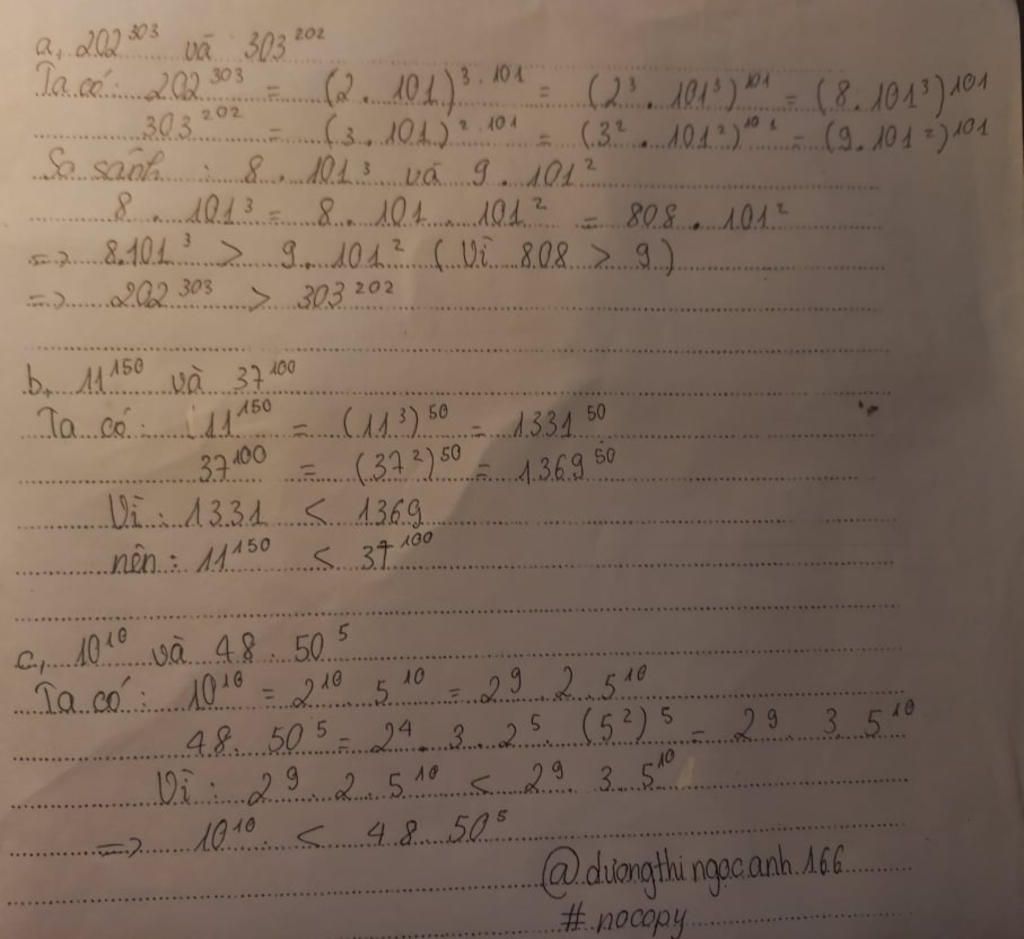 a, 202³⁰³ và 303²⁰²
Ta có: 202³⁰³ = (2 . 101)³·¹⁰¹ = (2³ . 101³)¹⁰¹ = (8 . 101³)¹⁰¹
303²⁰² = (3 . 101)²·¹⁰¹ = (3² . 101²)¹⁰¹ = (9 . 101²)¹⁰¹
So sánh : 8 . 101³ và 9 . 101²
8 . 101³ = 8 . 101 . 101² = 808 . 101²
=> 8.101³ > 9 . 101² ( Vì 808 > 9 )
=> 202³⁰³ > 303²⁰²
b, 11¹⁵⁰ và 37¹⁰⁰
Ta có : 11¹⁵⁰ = (11³)⁵⁰ = 1331⁵⁰
37¹⁰⁰ = (37²)⁵⁰ = 1369⁵⁰
Vì : 1331 < 1369
nên : 11¹⁵⁰ < 37¹⁰⁰
c, 10¹⁰ và 48 . 50⁵
Ta có : 10¹⁰ = 2¹⁰ . 5¹⁰ = 2⁹ . 2 . 5¹⁰
48 . 50⁵ = 2⁴ . 3 . 2⁵ . (5²)⁵ = 2⁹ . 3 . 5¹⁰
Vì : 2⁹ . 2 . 5¹⁰ < 2⁹ . 3 . 5¹⁰
=> 10¹⁰ < 48 . 50⁵
@duongthingocanh.166
# nocopy